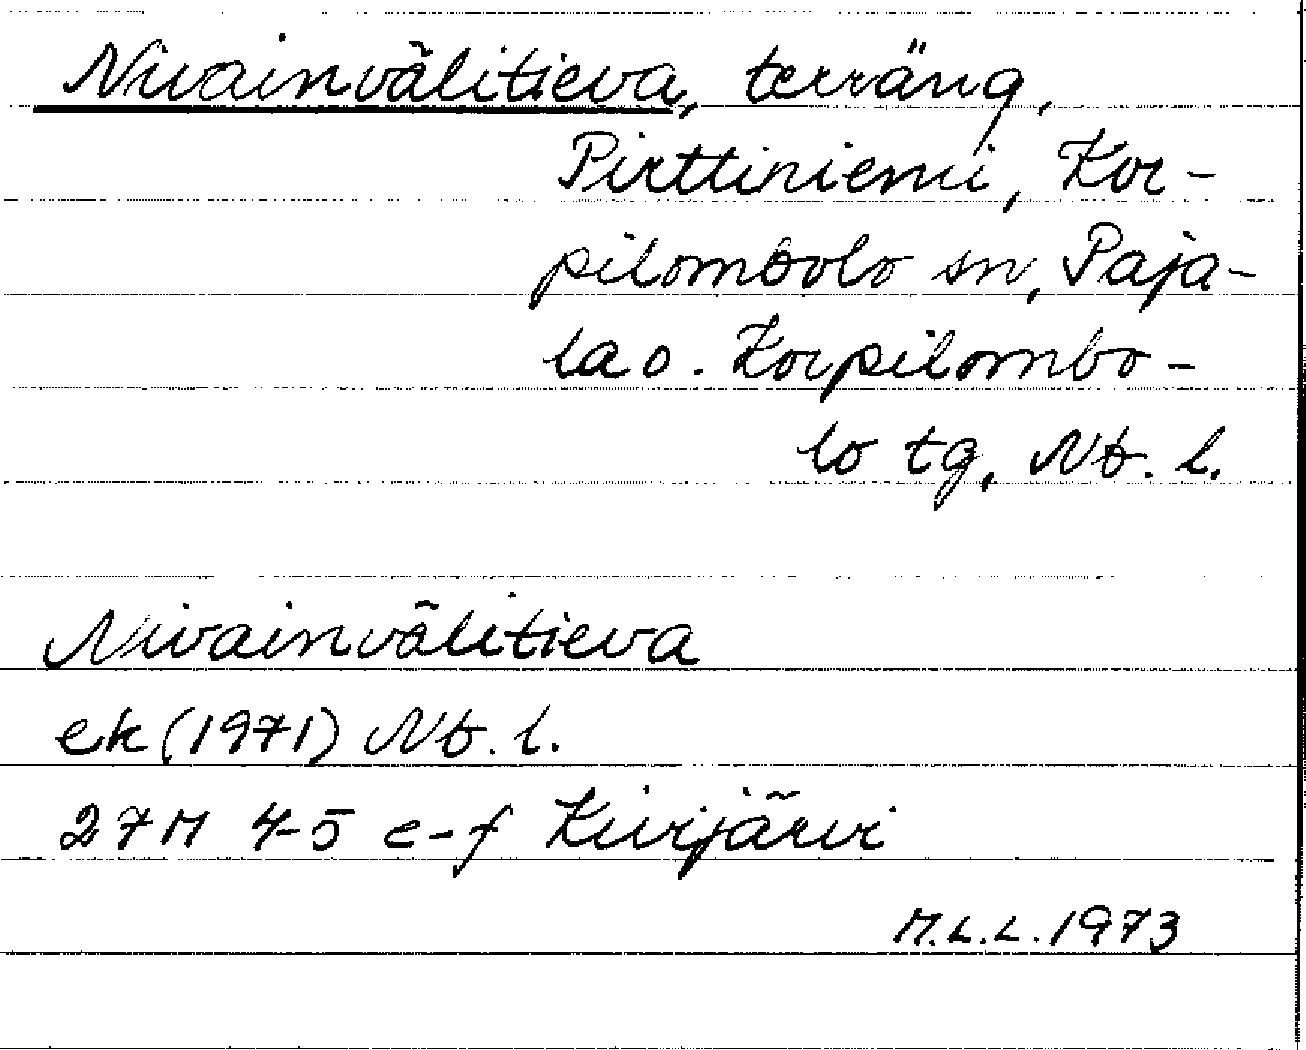 Nivainvälitieva, terräng,
Pirttiniemi, Kor-
pilombolo sn, Paja-
la o. Korpilombo-
lo tg, Nb. l.
Nivainvälitieva
ek (1971) Nb. l.
27M 4-5 e-f Kivijärvi
M.L.L. 1973